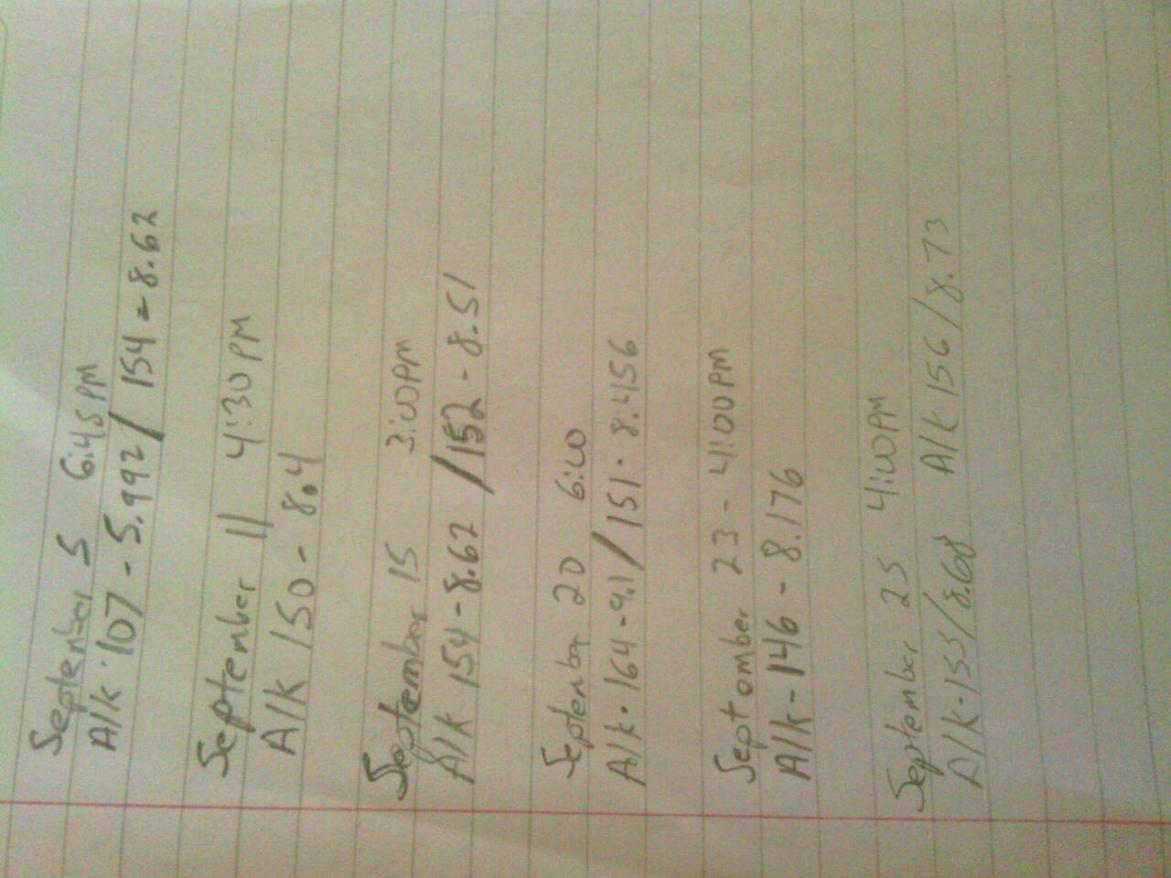 September 5 6:45 PM
Alk · 107 - 5.992 / 154 - 8.62
September 11 4:30 PM
Alk 150 - 8.4
September 15 3:00 PM
Alk 154 - 8.62 / 152 - 8.51
September 20 6:00
Alk · 164 - 9.1 / 151 · 8.456
September 23 - 4:00 PM
Alk - 146 - 8.176
September 25 4:00 PM
Alk · 155 / 8.68 Alk 156 / 8.73